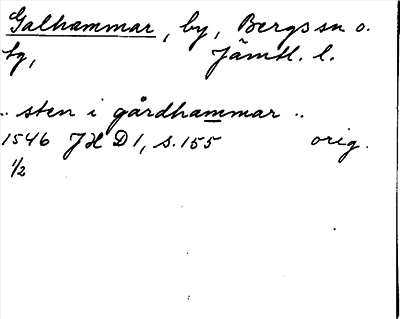 Galhammar, by, Bergs sn o.
tg, Jämtl. l.
.. sten i gårdhammar ..
1546 JHD 1, s. 155 orig.
1/2